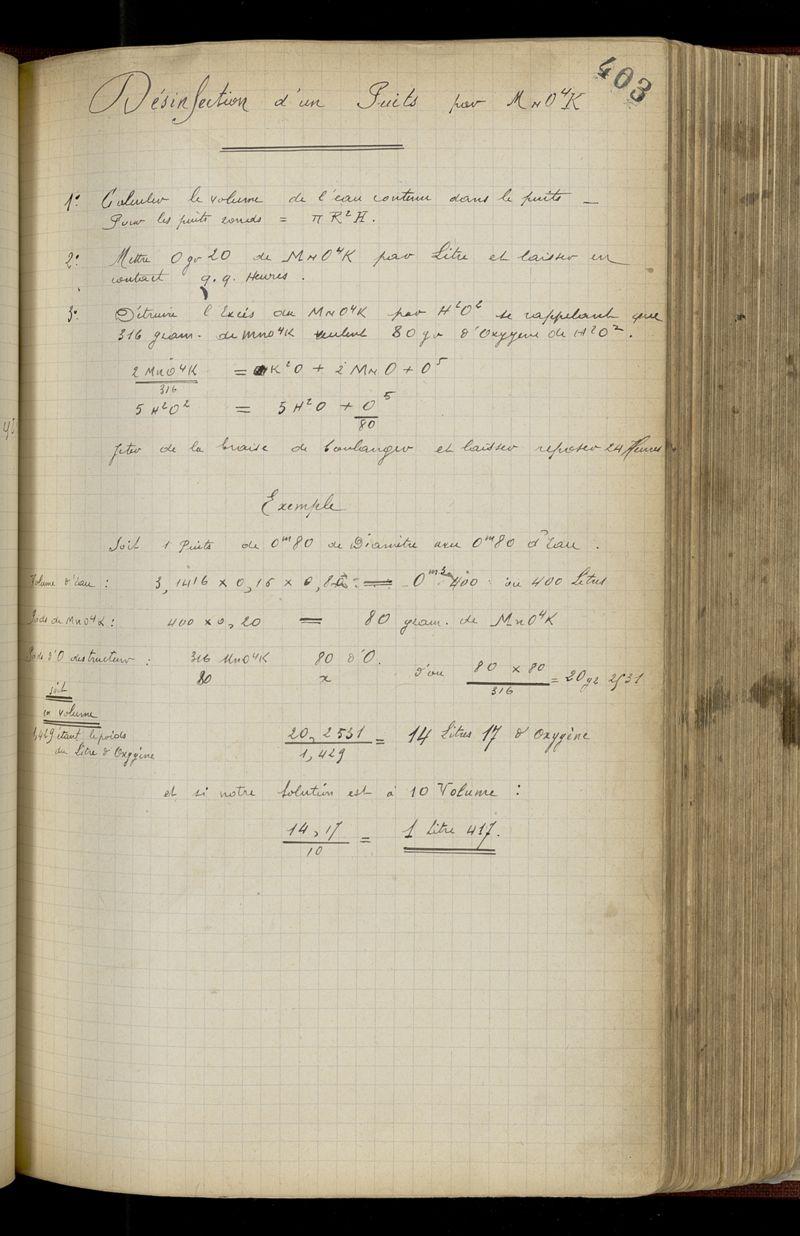 403
Désinfection d'un Puits par MnO⁴K
1° Calculer le volume de l'eau contenue dans le puits —
Pour les puits ronds = π R² H.
2° Mettre 0 gr 20 de MnO⁴K par Litre et laisser en
contact q.q. Heures.
3° Détruire l'Excès du MnO⁴K par H²O² se rappelant que
316 gram. de MnO⁴K veulent 80 gr d'Oxygène de H²O².
2 MnO⁴K = K²O + 2 MnO + O⁵
316
5 H²O² = 5 H²O + O⁵
80
Jeter de la braise de boulanger et laisser reposer 24 Heures
Exemple
Soit 1 Puits de 0ᵐ80 de Diamètre avec 0ᵐ80 d'Eau.
Volume d'eau : 3,1416 × 0,16 × 0,80 = 0ᵐ³400 ou 400 Litres
Poids de MnO⁴K : 400 × 0,20 = 80 gram. de MnO⁴K
Poids d'O destructeur : 316 MnO⁴K 80 d'O. d'ou 80 × 80 = 20 gr 2531
80 x 316
soit
en volume
1,429 étant le poids 20,2531 = 14 Litres 17 d'Oxygène
du Litre d'Oxygène 1,429
et si notre solution est à 10 Volume :
14,17 = 1 Litre 417.
10